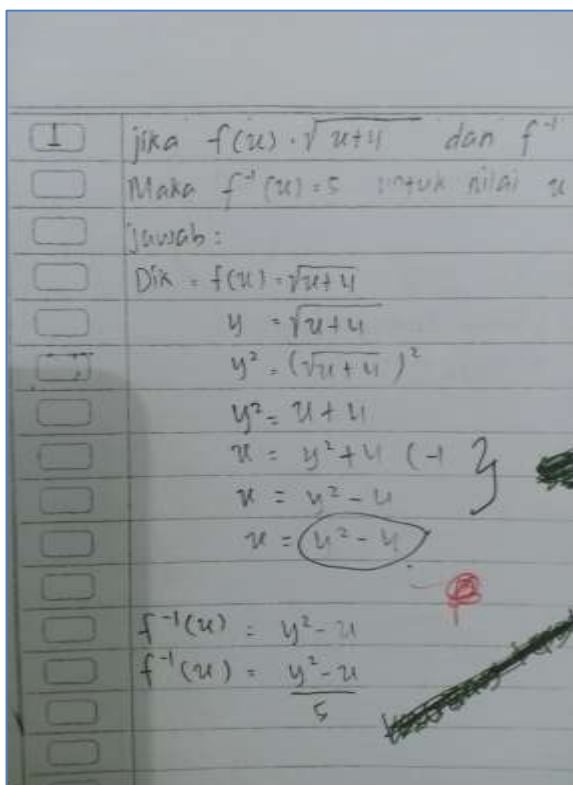 1 jika f(x) = √x+4 dan f⁻¹
Maka f⁻¹(x) = 5 untuk nilai x
jawab :
Dik = f(x) = √x+4
y = √x+4
y² = (√x+4)²
y² = x+4
x = y²+4 (-1
x = y² - 4
x = y² - 4
f⁻¹(x) = y² - 4
f⁻¹(x) = y² - 4
5